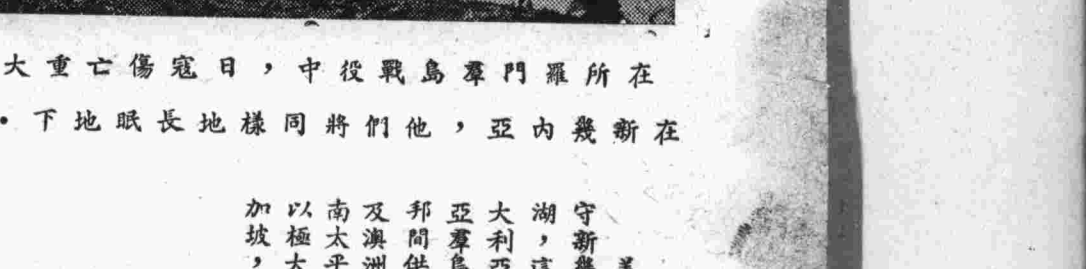 在所羅門羣島戰役中，日寇傷亡重大
在新幾內亞，他們將同樣地長眠地下・
守新幾
湖，這
大利亞
亞羣島
邦間供
及澳洲
南太平
以極大
加坡，